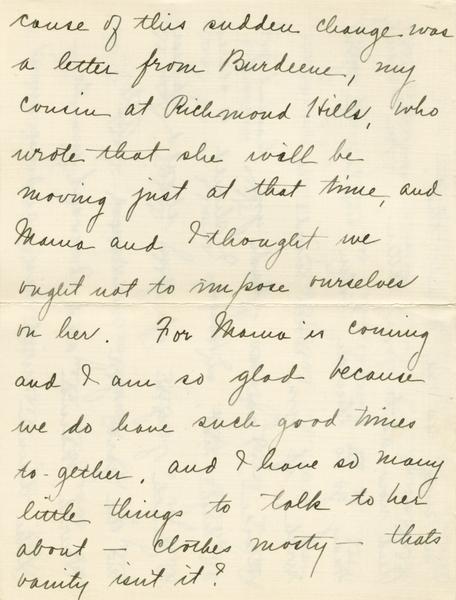 cause of this sudden change was
a letter from Burdeene, my
cousin at Richmond Hills, who
wrote that she will be
moving just at that time, and
Mama and I thought we
ought not to impose ourselves
on her. For Mama is coming
and I am so glad because
we do have such good times
to-gether, and I have so many
little things to talk to her
about — clothes mosty — thats
vanity isn't it?